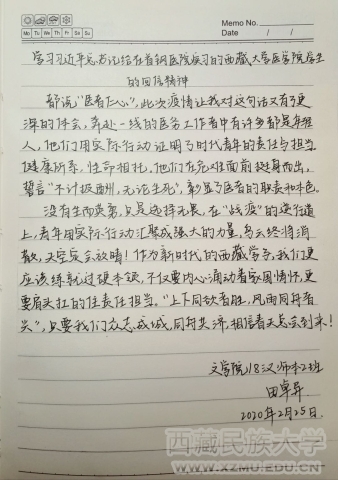 Memo No.
Mo Tu We Th Fr Sa Su
Date / /
学习习近平总书记给在首钢医院实习的西藏大学医学院学生
的回信精神
都说"医者仁心"，此次疫情让我对这句话又有了更
深的体会，奔赴一线的医务工作者中有许多都是年轻
人，他们用实际行动证明了时代青年的责任与担当
健康所系，性命相托。他们在危难面前挺身而出，
誓言"不计报酬，无论生死"，彰显了医者的职责和本色。
没有生而英勇，只是选择无畏，在"战疫"的逆行道
上，青年用实际行动汇聚成强大的力量，乌云终将消
散，天空总会放晴！作为新时代的西藏学子，我们更
应该练就过硬本领，不仅要内心涌动着家国情怀，更
要肩头扛的住责任担当。"上下同欲者胜，风雨同舟者
兴"，只要我们众志成城，同舟共济，相信春天总会到来！
文学院18汉师本2班
田卓异
2020年2月25日
西藏民族大学
WWW.XZMU.EDU.CN